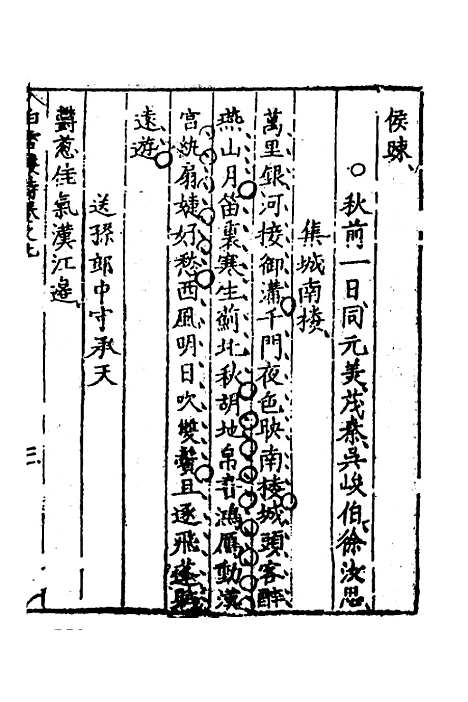 侯疎
秋前一日同元美茂秦吳峻伯徐汝思
集城南樓
萬里銀河接御溝千門夜色映南樓城頭客醉
燕山月笛裏寒生薊北秋胡地帛書鴻鴈動漢
宮紈扇婕妤愁西風明日吹雙鬢且逐飛蓬賦
遠遊
送孫郎中守承天
鬱蔥佳氣漢江邊
白雪樓詩集之七
三